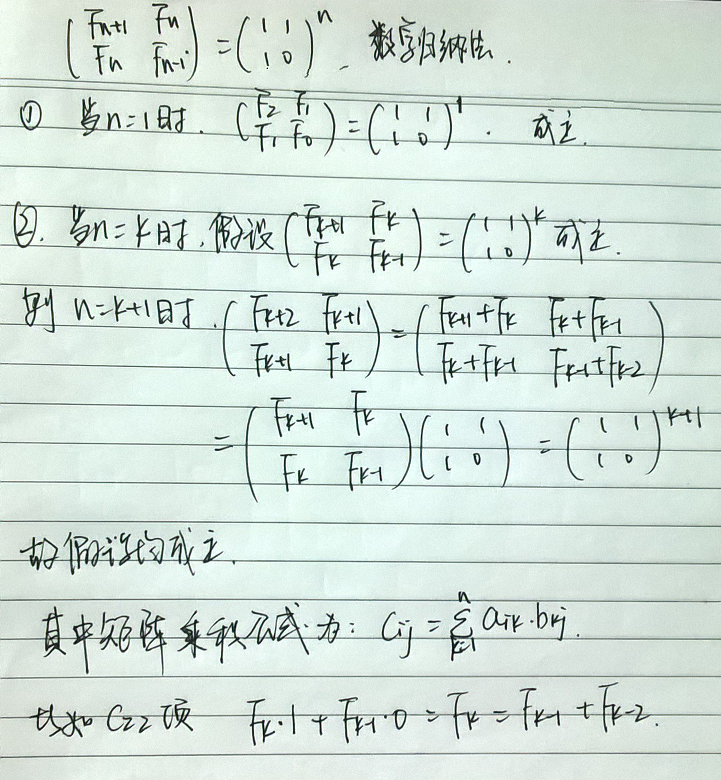 (F_{n+1} F_n; F_n F_{n-1}) = (1 1; 1 0)^n. 数学归纳法.
① 当n=1时. (F_2 F_1; F_1 F_0) = (1 1; 1 0)^1. 成立.
②. 当n=k时, 假设 (F_{k+1} F_k; F_k F_{k-1}) = (1 1; 1 0)^k 成立.
则 n=k+1时. (F_{k+2} F_{k+1}; F_{k+1} F_k) = (F_{k+1}+F_k F_k+F_{k-1}; F_k+F_{k-1} F_{k-1}+F_{k-2})
= (F_{k+1} F_k; F_k F_{k-1}) (1 1; 1 0) = (1 1; 1 0)^{k+1}
故假设均成立.
其中矩阵乘积公式为: C_{ij} = \sum_{k=1}^{n} a_{ik}·b_{kj}.
比如 C_{22} 项 F_k·1 + F_{k-1}·0 = F_k = F_{k-1} + F_{k-2}.